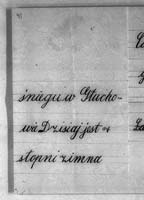 śniegu w Głucho-
wie Dzisiaj jest 4
stopni zimna